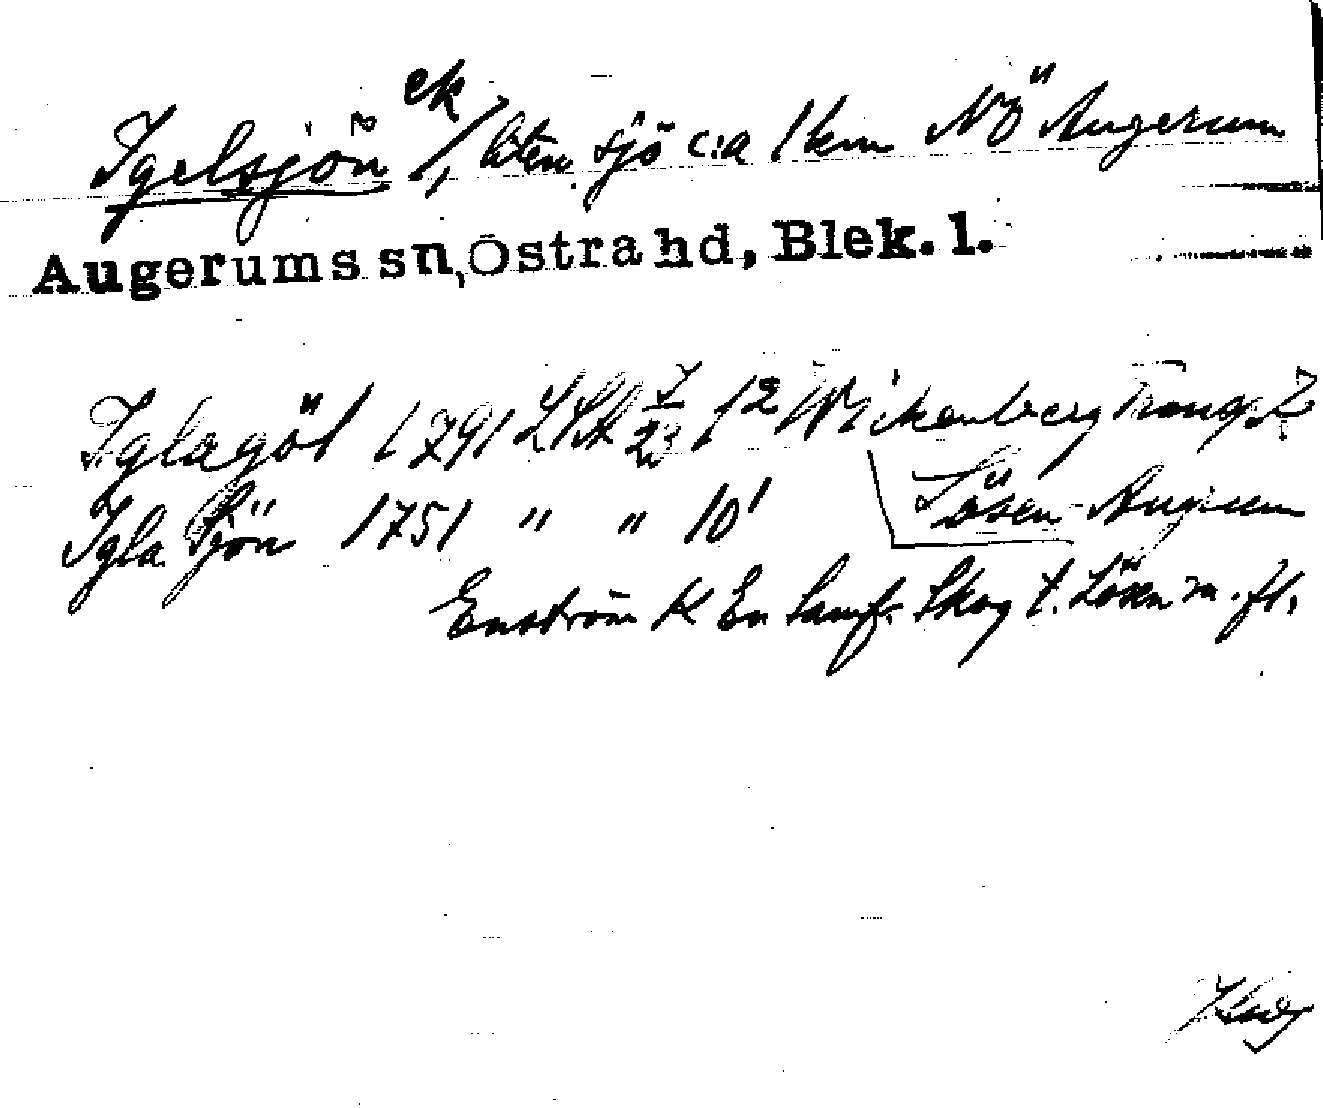 Igelsjön ek/, liten sjö c:a 1 km NÖ Augerum
Augerums sn, Östra hd, Blek. l.
Iglagöl 1791 LSA I/23 1² Wikenberg Transp. L
Igla Sjön 1751 " " 10¹ Lösen Augerum
Enström K En Samf. Skog t. Lösen m. fl.